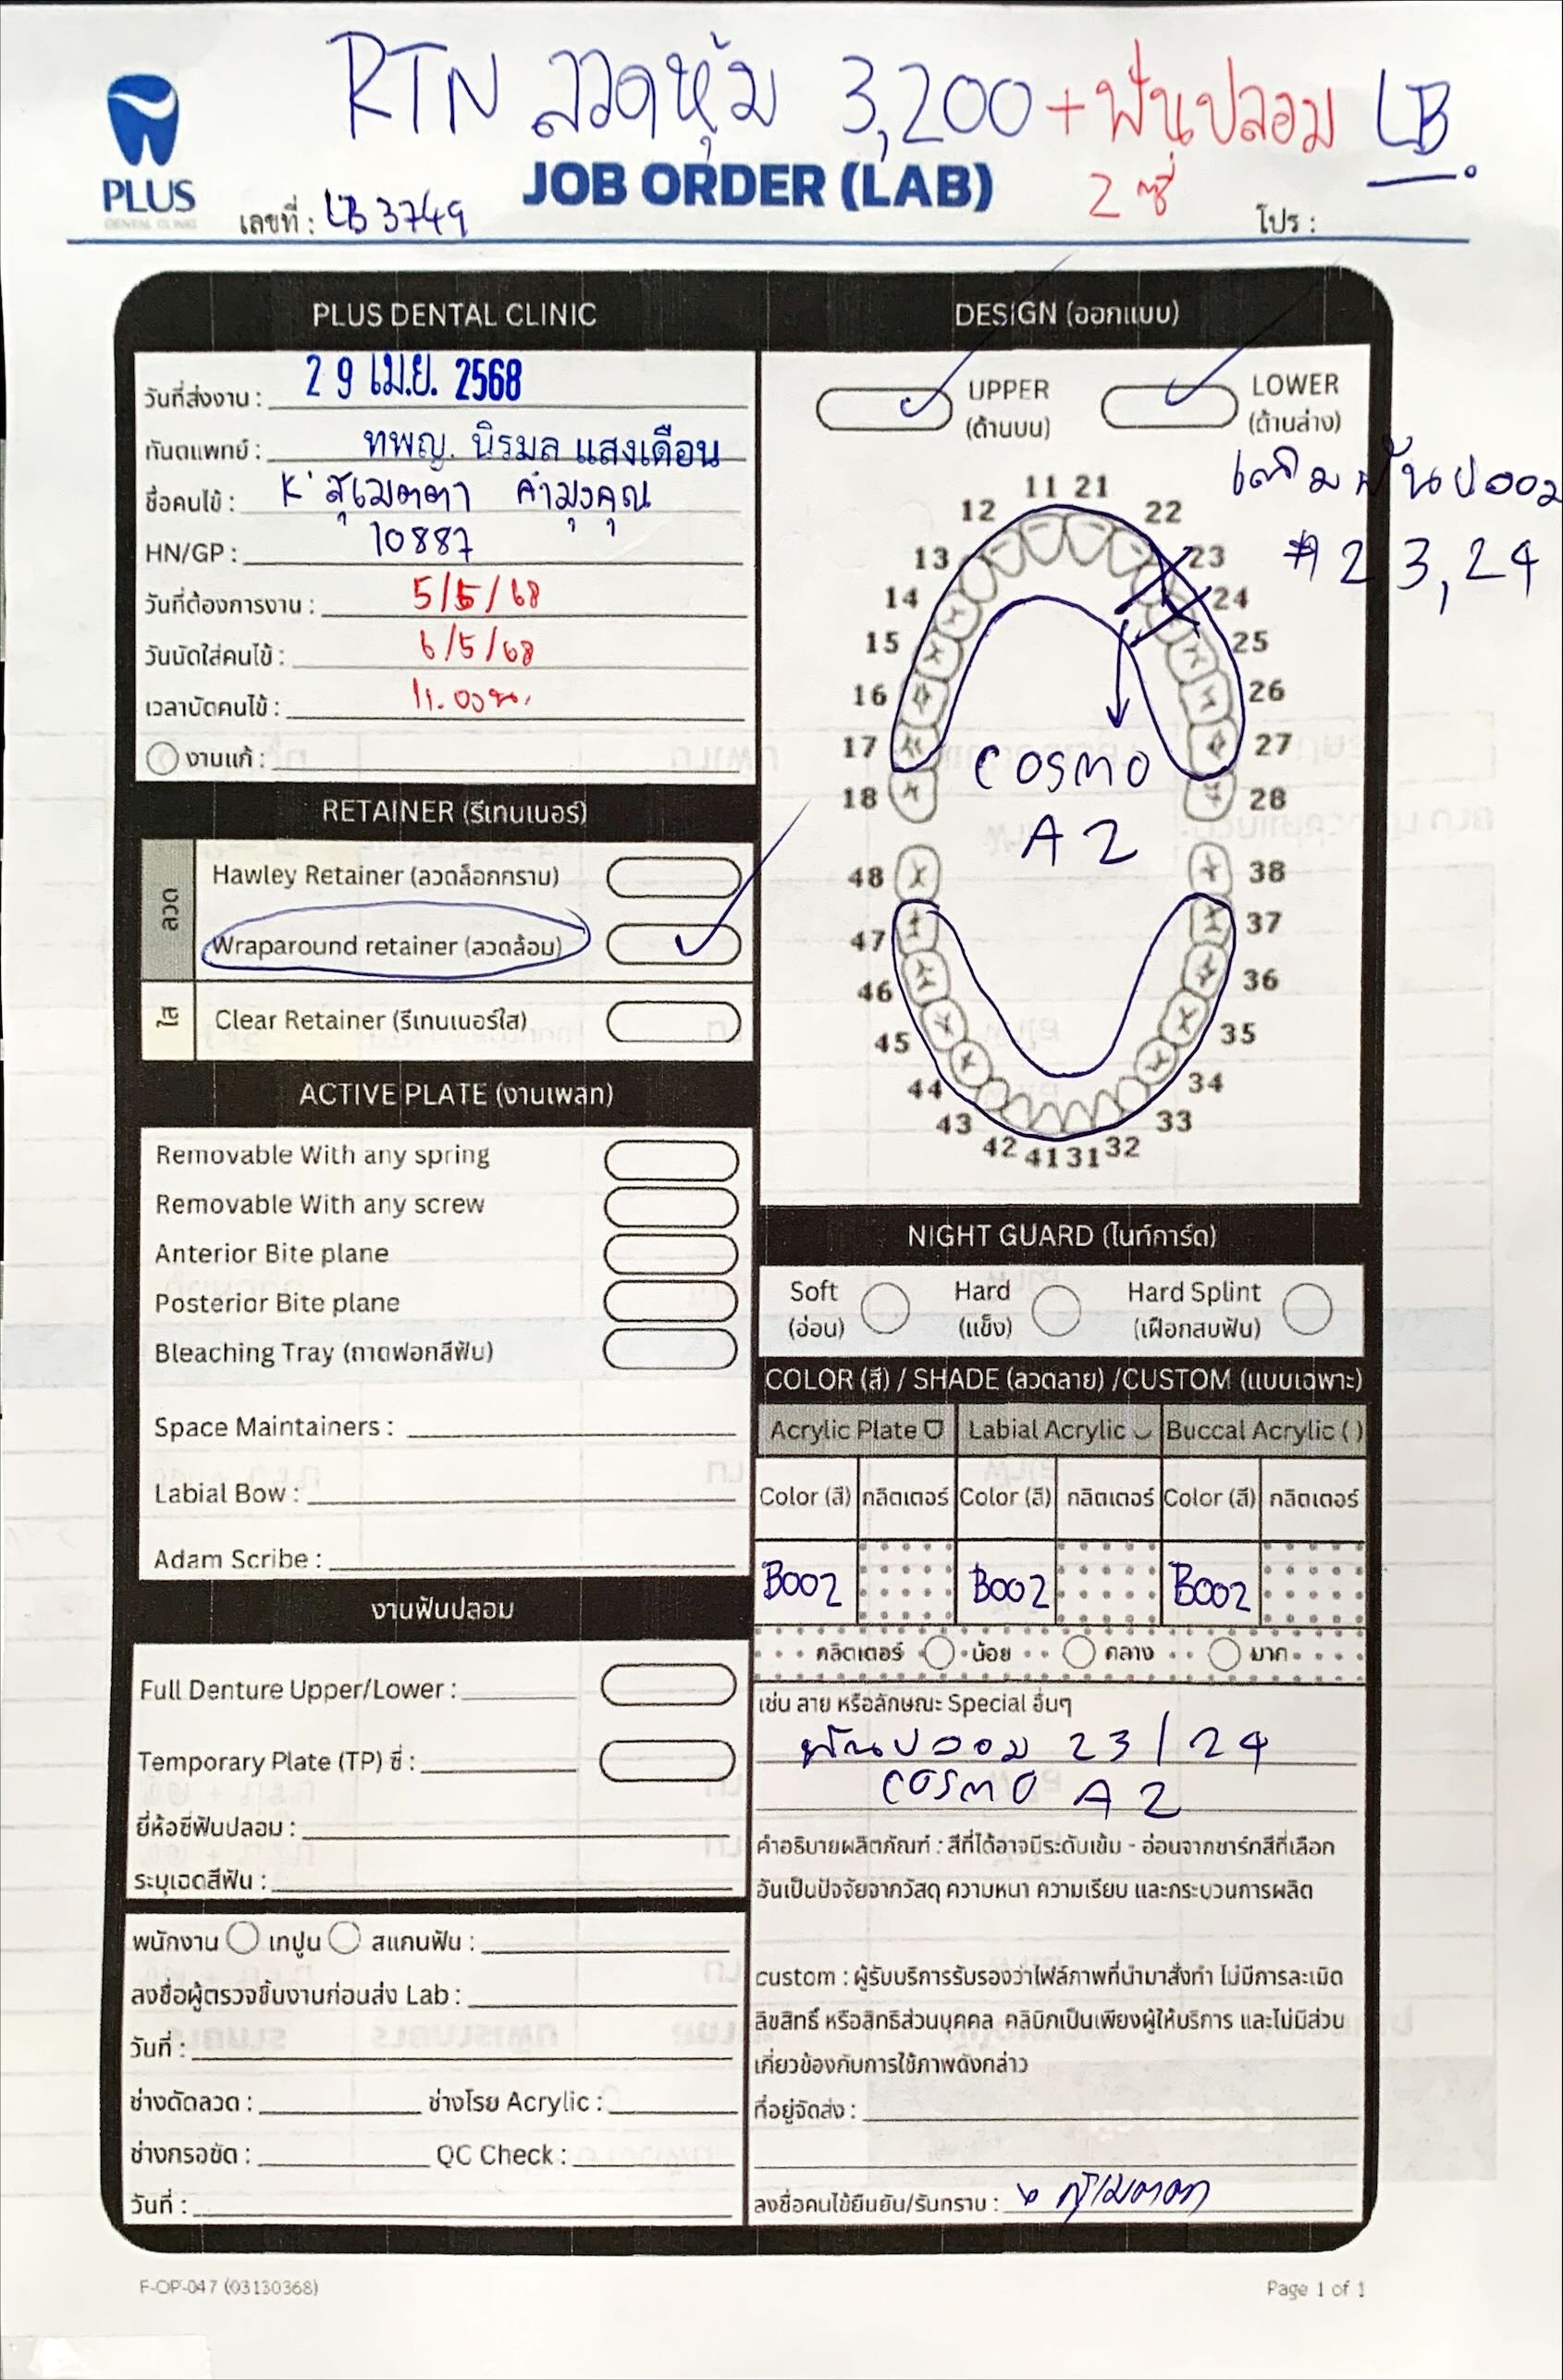 RTN ลวดหุ้ม 3,200 + ฟันปลอม LB.
2 ซี่
PLUS
DENTAL CLINIC
JOB ORDER (LAB)
เลขที่ : LB 3749
โปร :
PLUS DENTAL CLINIC
วันที่ส่งงาน : 29 เม.ย. 2568
ทันตแพทย์ : ทพญ. นิรมล แสงเดือน
ชื่อคนไข้ : K' สุเมตตา คำมุงคุณ
HN/GP : 10887
วันที่ต้องการงาน : 5/5/68
วันนัดใส่คนไข้ : 6/5/68
เวลานัดคนไข้ : 11.00น.
งานแก้ :
RETAINER (รีเทนเนอร์)
ลวด
Hawley Retainer (ลวดล็อกกราม)
Wraparound retainer (ลวดล้อม)
ใส
Clear Retainer (รีเทนเนอร์ใส)
ACTIVE PLATE (งานเพลท)
Removable With any spring
Removable With any screw
Anterior Bite plane
Posterior Bite plane
Bleaching Tray (ถาดฟอกสีฟัน)
Space Maintainers :
Labial Bow :
Adam Scribe :
งานฟันปลอม
Full Denture Upper/Lower :
Temporary Plate (TP) ซี่ :
ยี่ห้อซี่ฟันปลอม :
ระบุเฉดสีฟัน :
พนักงาน เทปูน สแกนฟัน :
ลงชื่อผู้ตรวจชิ้นงานก่อนส่ง Lab :
วันที่ :
ช่างดัดลวด : ช่างโรย Acrylic :
ช่างกรอขัด : QC Check :
วันที่ :
DESIGN (ออกแบบ)
UPPER (ด้านบน)
LOWER (ด้านล่าง)
เติมฟันปลอม
#23,24
11 21
12 22
13 23
14 24
15 25
16 26
17 27
18 28
COSMO
A2
48 38
47 37
46 36
45 35
44 34
43 33
42 41 31 32
NIGHT GUARD (ไนท์การ์ด)
Soft (อ่อน)
Hard (แข็ง)
Hard Splint (เฝือกสบฟัน)
COLOR (สี) / SHADE (ลวดลาย) /CUSTOM (แบบเฉพาะ)
Acrylic Plate Labial Acrylic Buccal Acrylic ( )
Color (สี) กลิตเตอร์ Color (สี) กลิตเตอร์ Color (สี) กลิตเตอร์
B002 B002 B002
กลิตเตอร์ น้อย กลาง มาก
เช่น ลาย หรือลักษณะ Special อื่นๆ
ฟันปลอม 23/24
COSMO A2
คำอธิบายผลิตภัณฑ์ : สีที่ได้อาจมีระดับเข้ม - อ่อนจากชาร์ทสีที่เลือก
อันเป็นปัจจัยจากวัสดุ ความหนา ความเรียบ และกระบวนการผลิต
custom : ผู้รับบริการรับรองว่าไฟล์ภาพที่นำมาสั่งทำ ไม่มีการละเมิด
ลิขสิทธิ์ หรือสิทธิส่วนบุคคล คลินิกเป็นเพียงผู้ให้บริการ และไม่มีส่วน
เกี่ยวข้องกับการใช้ภาพดังกล่าว
ที่อยู่จัดส่ง :
ลงชื่อคนไข้ยืนยัน/รับทราบ : สุเมตตา
F-OP-047 (03130368)
Page 1 of 1